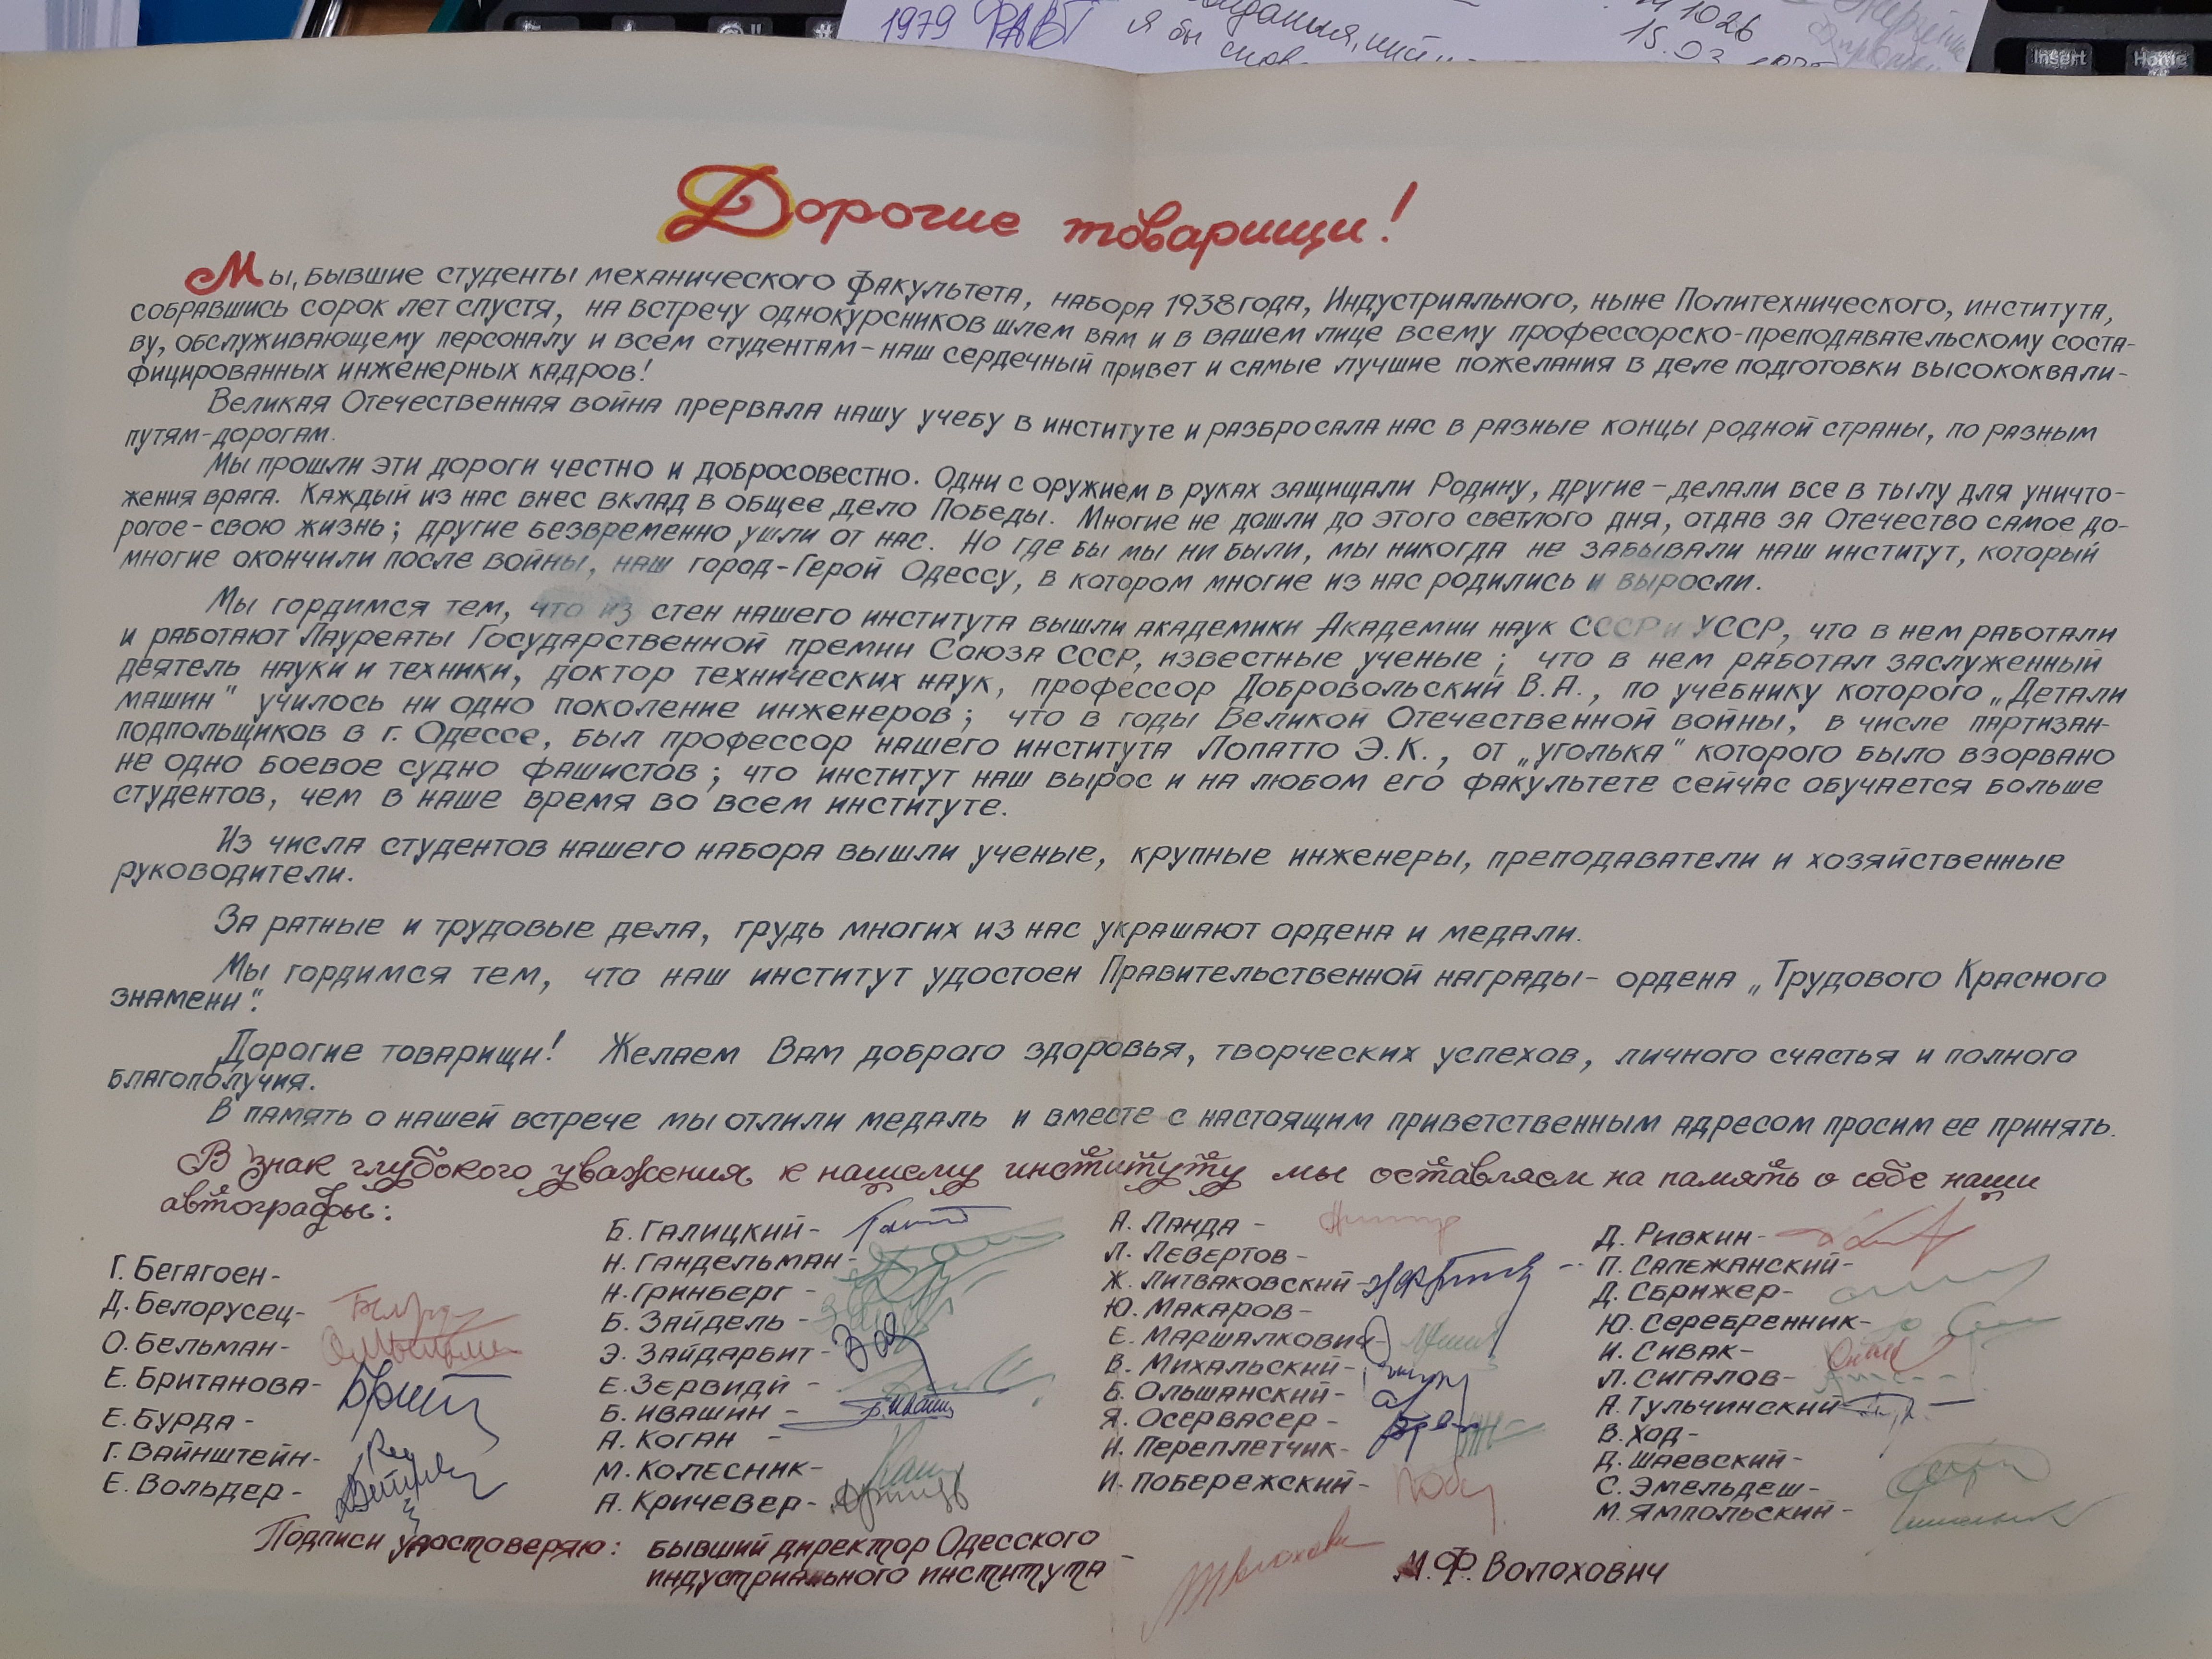 1979 РАВТ
я бы
1026
15.03
Insert
Home
Дорогие товарищи!
Мы, бывшие студенты механического факультета, набора 1938 года, Индустриального, ныне Политехнического, института,
собравшись сорок лет спустя, на встречу однокурсников шлем вам и в вашем лице всему профессорско-преподавательскому соста-
ву, обслуживающему персоналу и всем студентам – наш сердечный привет и самые лучшие пожелания в деле подготовки высококвали-
фицированных инженерных кадров!
Великая Отечественная война прервала нашу учебу в институте и разбросала нас в разные концы родной страны, по разным
путям-дорогам.
Мы прошли эти дороги честно и добросовестно. Одни с оружием в руках защищали Родину, другие – делали все в тылу для уничто-
жения врага. Каждый из нас внес вклад в общее дело Победы. Многие не дошли до этого светлого дня, отдав за Отечество самое до-
рогое – свою жизнь; другие безвременно ушли от нас. Но где бы мы ни были, мы никогда не забывали наш институт, который
многие окончили после войны, наш город-Герой Одессу, в котором многие из нас родились и выросли.
Мы гордимся тем, что из стен нашего института вышли академики Академии наук СССР и УССР, что в нем работали
и работают Лауреаты Государственной премии Союза ССР, известные ученые; что в нем работал заслуженный
деятель науки и техники, доктор технических наук, профессор Добровольский В.А., по учебнику которого „Детали
машин" училось ни одно поколение инженеров; что в годы Великой Отечественной войны, в числе партизан-
подпольщиков в г. Одессе, был профессор нашего института Лопатто Э.К., от „уголька" которого было взорвано
не одно боевое судно фашистов; что институт наш вырос и на любом его факультете сейчас обучается больше
студентов, чем в наше время во всем институте.
Из числа студентов нашего набора вышли ученые, крупные инженеры, преподаватели и хозяйственные
руководители.
За ратные и трудовые дела, грудь многих из нас украшают ордена и медали.
Мы гордимся тем, что наш институт удостоен Правительственной награды – ордена „Трудового Красного
знамени".
Дорогие товарищи! Желаем Вам доброго здоровья, творческих успехов, личного счастья и полного
благополучия.
В память о нашей встрече мы отлили медаль и вместе с настоящим приветственным адресом просим ее принять.
В знак глубокого уважения к нашему институту мы оставляем на память о себе наши
автографы:
Г. Бегагоен-
Д. Белорусец-
О. Бельман-
Е. Британова-
Е. Бурда-
Г. Вайнштейн-
Е. Вольдер-
Б. Галицкий-
Н. Гандельман-
Н. Гринберг-
Б. Зайдель-
Э. Зайдарбит-
Е. Зервиди-
Б. Ивашин-
А. Коган-
М. Колесник-
А. Кричевер-
А. Ланда-
Л. Левертов-
Ж. Литваковский-
Ю. Макаров-
Е. Маршалкович-
В. Михальский-
Б. Ольшанский-
Я. Осервасер-
И. Переплетчик-
И. Побережский-
Д. Ривкин-
П. Салежанский-
Д. Сбрижер-
Ю. Серебренник-
И. Сивак-
Л. Сигалов-
А. Тульчинский-
В. Ход-
Д. Шаевский-
С. Эмельдеш-
М. Ямпольский-
Подписи удостоверяю: бывший директор Одесского
индустриального института – М.Ф. Волохович